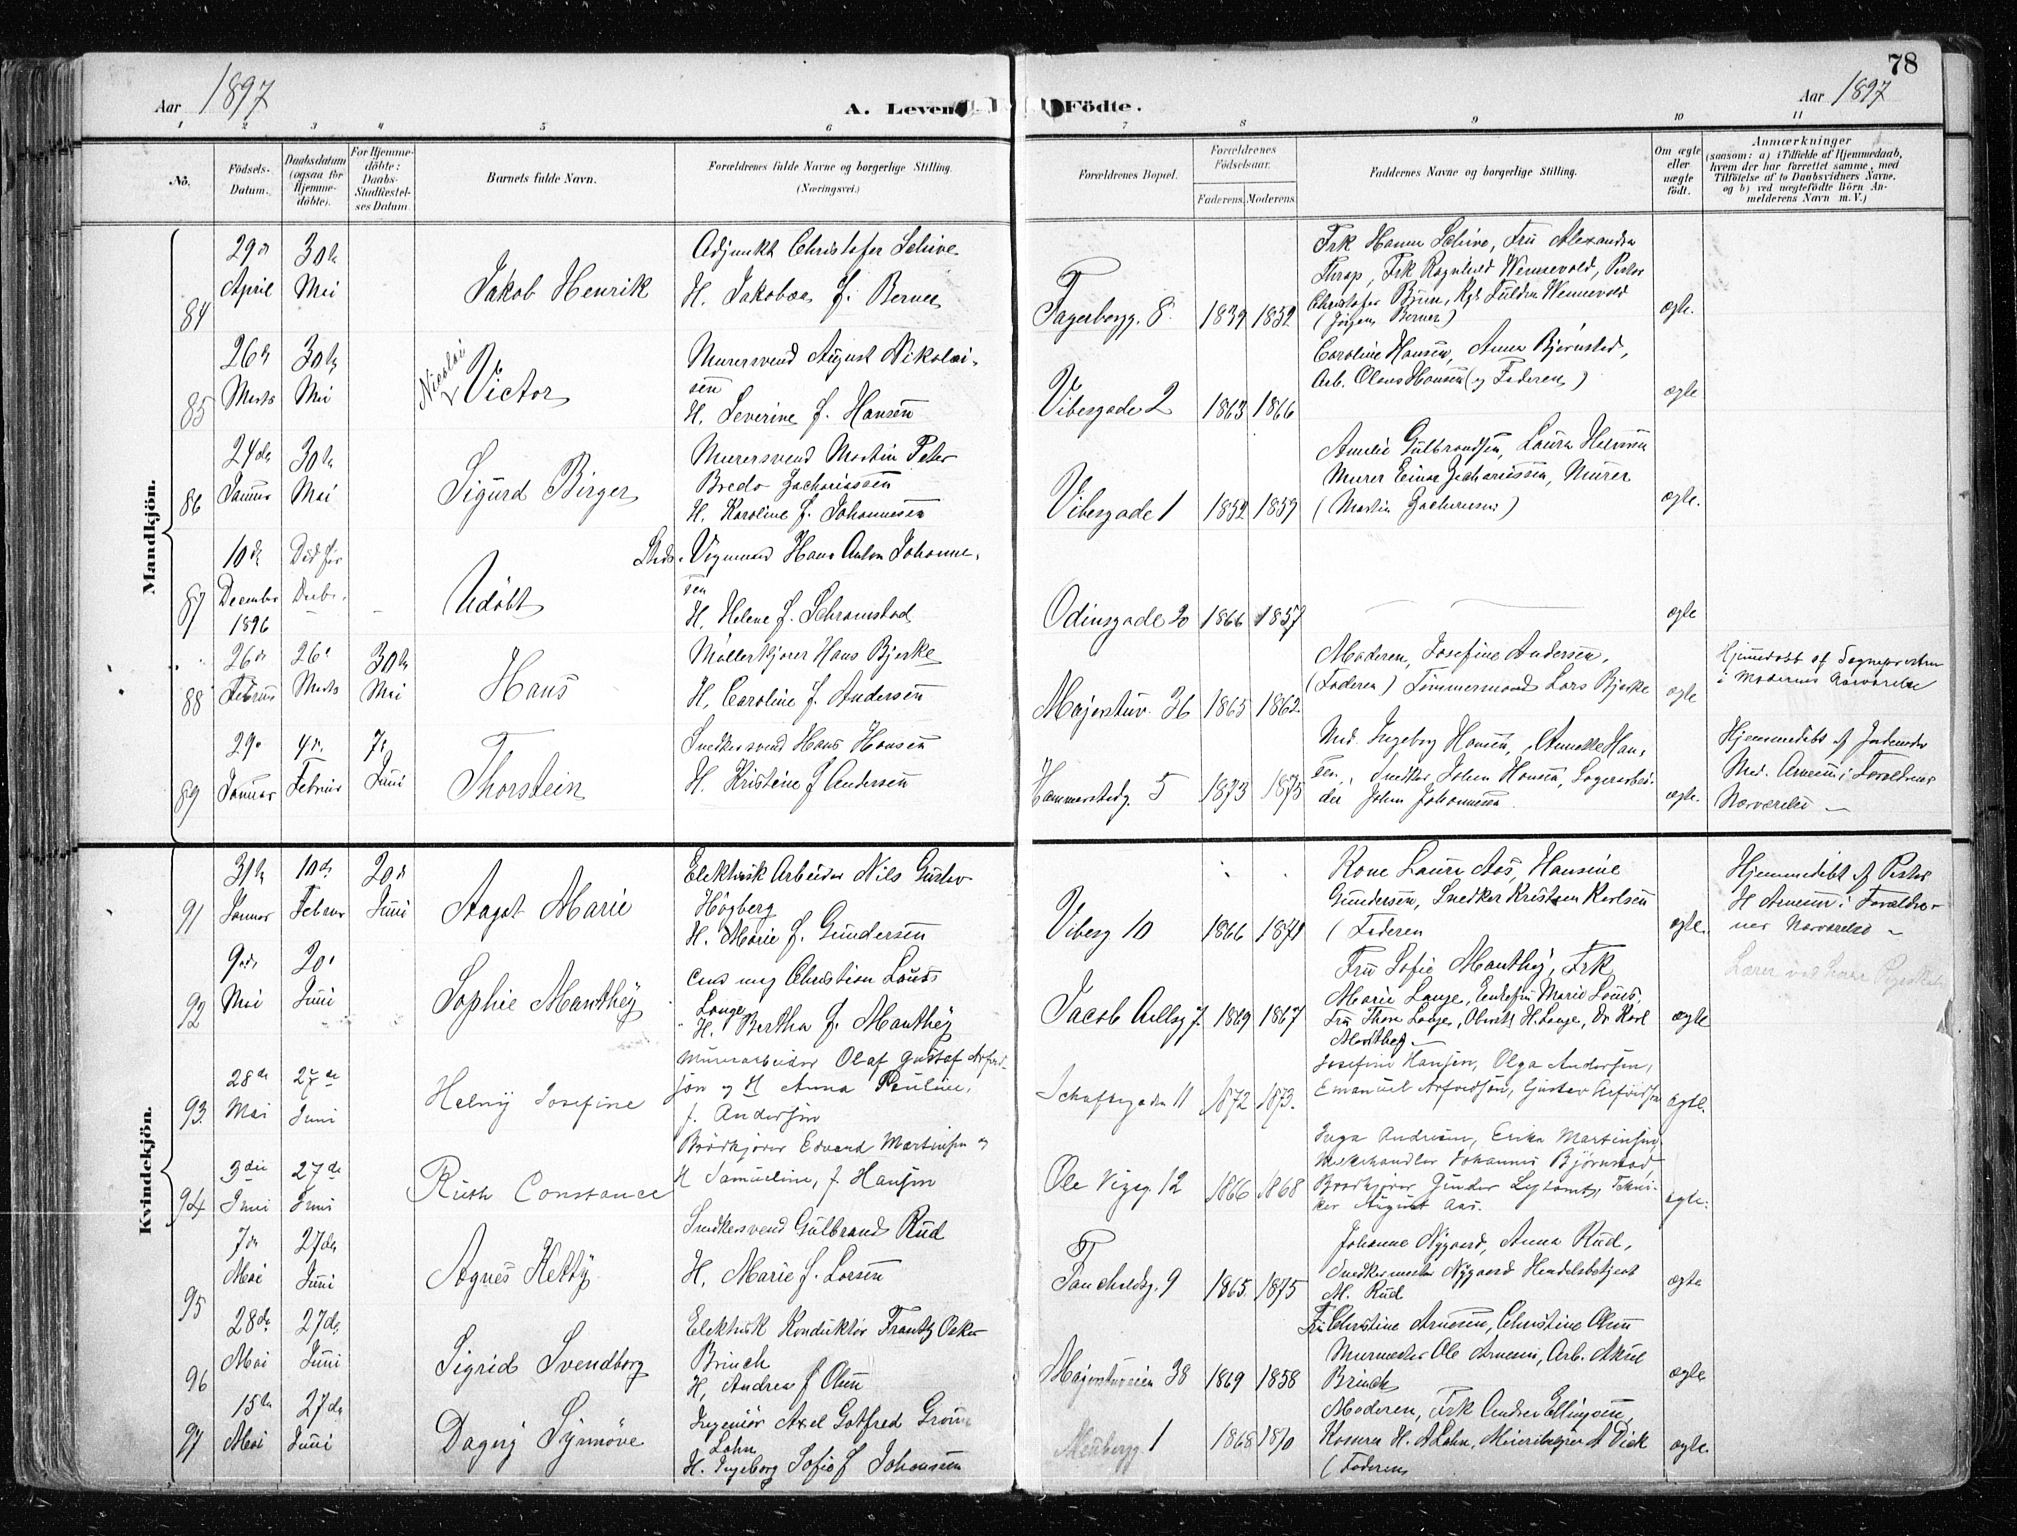 78
Aar 1897
A. Levende Födte.
Aar 1897
1 2 3 4 5 6 7 8 9 10 11
No.
Födsels-Datum.
Daabsdatum (ogsaa for Hjemme-döbte).
For Hjemme-döbte: Daabs-Stadfæstel-ses Datum.
Barnets fulde Navn.
Forældrenes fulde Navne og borgerlige Stilling.
(Næringsvei.)
Forældrenes Bopæl.
Forældrenes Födselsaar.
Faderens. Moderens.
Faddernes Navne og borgerlige Stilling.
Om ægte eller uægte födt.
Anmærkninger
(saasom: a) i Tilfælde af Hjemmedaab,
hvem der har forrettet samme, med
Tilföielse af to Daabsvidners Navne,
og b) ved uægtefödte Börn An-
melderens Navn m. V.)
Mandkjön.
84
29de April
30te Mai
Jakob Henrik
Adjunkt Christofer Schive
H. Jakobæa f. Berner
Fagerborgg. 8.
1839 1852
Frk Hanna Schive, Fru Alexandra
Thrap, Frk Ragnhild Wennevold, Pastor
Christofer Bruun,
(Jörgen Berner)
ægte.
85
26de Marts
30te Mai
Nicolai
Victor
Murersvend August Nikolai-
sen
H. Severine f. Hansen
Vibesgade 2
1863 1866
Caroline Hansen, Anna Bjørnstad,
Arb. Olaus Hansen (og Faderen)
ægte
86
24de Januar
30te Mai
Sigurd Birger
Murersvend Martin Peter
Bredo Zachariassen
H. Karoline f. Johannesen
Vibesgade 1
1852 1859
Amelie Gulbrandsen, Laura Hermansen
Murer Einar Zachariassen, Murer
(Martin Zachariassen)
ægte.
87
10de December 1896
Död før Daabe.
Udöbt
Vognmand Hans Anton Johanne-
sen
H. Helene f. Schramstad
Odinsgade 20
1866 1857
ægte
88
26de Februar
26de Marts
30te Mai
Hans
Møllerkjører Hans Bjerke
H. Caroline f. Andersen
Majorstuv. 36
1865 1862.
Moderen, Josefine Andersen,
(Faderen) Tømmermand Lars Bjerke
ægte
Hjemmedøbt af Sognepresten
i Moderens Nærværelse
89
29de Januar
4de Februar
7de Juni
Thorstein
Snedkersvend Hans Hansen
H. Kristine f Andersen
Hammerstadg. 5
1873 1875
Mod. Ingeborg Hansen, Annette Han-
sen, Snedker Johan Hansen, Sagarbei-
der Johan Johannesen.
ægte.
Hjemmedøbt af Jordemoder
Mad. Arnesen i Forældrenes
Nærværelse
Kvindekjön.
91
31te Januar
10de Februar
20de Juni
Aagot Marie
Elektrisk Arbeider Nils Gustav
Högberg
H. Marie f. Gundersen
Vibesg 10
1866 1871
Kone Laura Aas, Hansine
Gundersen, Snedker Kristian Karlsen
(Faderen
ægte.
Hjemmedøbt af Pastor
H Arnesen i Forældre-
nes Nærværelse
92
9de Mai
20de Juni
Sophie Manthey
Christian Louis
Lange
H. Bertha f. Manthey
Jacob Aallsg 7.
1869 1867
Fru Sofie Manthey, Frk
Marie Lange, Enkefru Marie Louis,
Fru Thora Lange, Oberstl H. Lange, Dr Karl
Manthey
ægte
93.
28de Mai
27de Juni
Helny Josefine
Murerarbeider Olaf Gustaf Arfved-
søn og H Anna Pauline,
f. Andersøn
11
1872 1873.
Josefine Hansen, Olga Andersen,
Emanuel Arfvedson, Gustav Arfvedson
ægte.
94
3die Juni
27de Juni
Ruth Constance
Brødkjører Edvard Martinsen og
H Samueline, f. Hansen
Ole Vigsg. 12
1866 1868
Inga Andresen, Erika Martinsen,
Johannes Bjørnstad,
Brødkjører Gunder Tekni-
ker August Aas.
ægte.
95
7de Mai
27de Juni
Agnes Hetty
Snedkersvend Gulbrand Rud
H. Marie f. Larsen
Fauchaldsg. 9
1865. 1875
Johanne Nygaard, Anna Rud,
Snedkermester Nygaard Handelsbetjent
M. Rud
ægte
96
28de Mai
27de Juni
Sigrid Svendborg
Elektrisk Konduktør Frantz Oskar
Brinch
H. Andrea f Olsen
Majorstuveien 38
1869 1858
Fru Christine Arnesen, Christine Olsen
Murmester Ole Arnesen, Arb. Aksel
Brinch
ægte
97
15de Mai
27de Juni
Dagny Synnøve
Ingeniør Axel Gotfred Grønn
Lohn
H. Ingeborg Sofie f Johansen
1
1868 1870
Moderen, Frk Andrea Ellingsen,
H. A Lohn, A Dick
(Faderen
ægte.